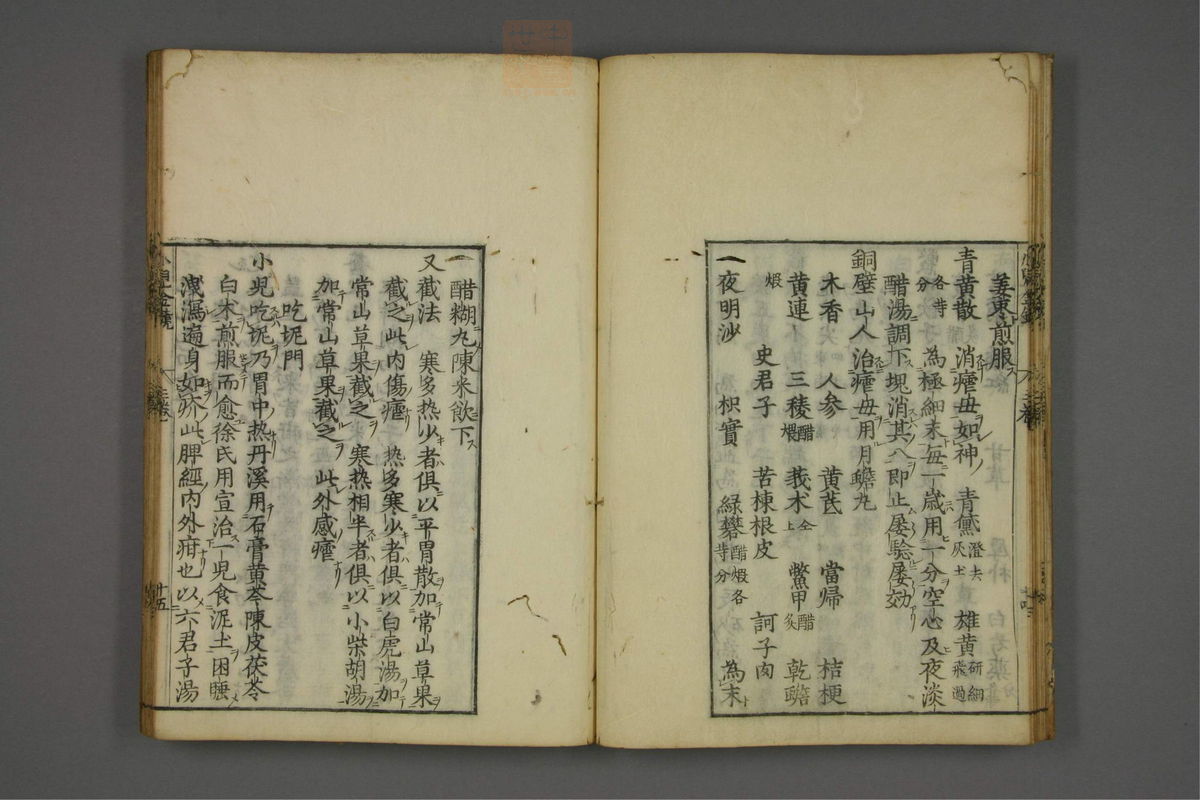 姜棗煎服
青黄散 消瘧毋如神 青黛澄去灰土 雄黄研細飛過
各等分 為極細末每一歳用一分空心及夜淡
醋湯調下塊消其八即止屡驗屡効
銅壁山人治瘧毋用月蟾丸
木香 人参 黄芪 當帰 桔梗
黄連 三稜醋煨 莪朮仝上 鱉甲醋炙 乾蟾
煆 史君子 苦楝根皮 訶子肉
一夜明沙 枳實 緑礬醋煆各等分 為末
一醋糊丸陳米飲下
又截法 寒多热少者俱以平胃散加常山草果
截之此内傷瘧 热多寒少者俱以白虎湯加
常山草果截之 寒热相半者俱以小柴胡湯
加常山草果截之 此外感瘧
吃坭門
小児吃坭乃胃中热丹溪用石膏黄芩陳皮茯苓
白朮煎服而愈徐氏用宣治一児食泥土困睡
洩瀉遍身如疥此脾經内外疳也以六君子湯